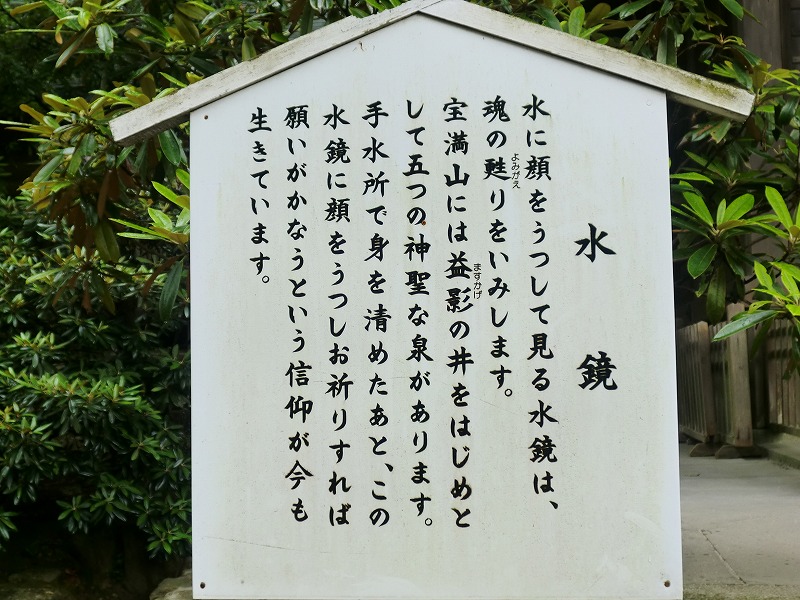 水鏡
水に顔をうつして見る水鏡は、
魂の甦りをいみします。
よみがえ
宝満山には益影の井をはじめと
ますかげ
して五つの神聖な泉があります。
手水所で身を清めたあと、この
水鏡に顔をうつしお祈りすれば
願いがかなうという信仰が今も
生きています。